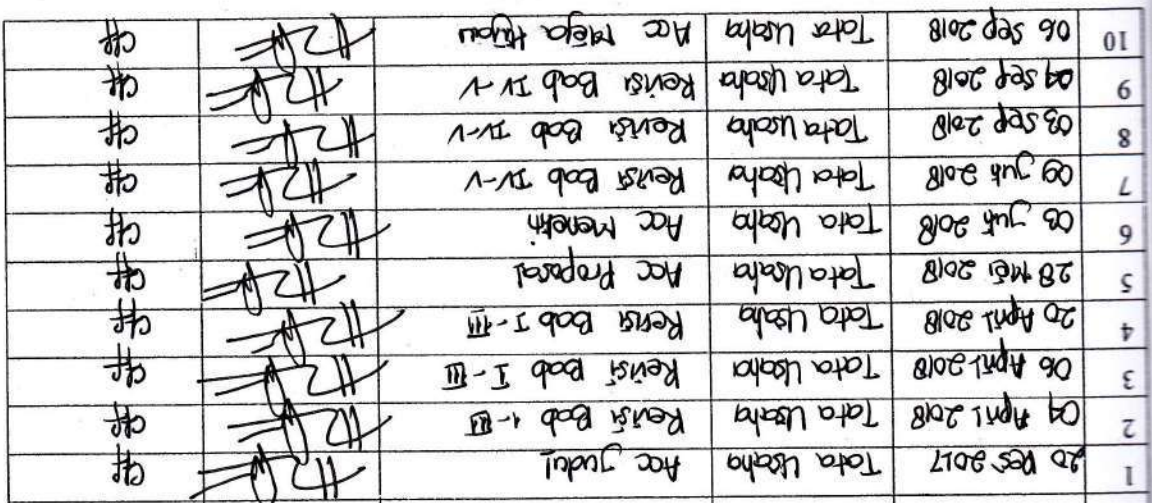 1 20 Des 2017 Tata Usaha Acc Judul
2 04 April 2018 Tata Usaha Revisi Bab I-III
3 06 April 2018 Tata Usaha Revisi Bab I-III
4 20 April 2018 Tata Usaha Revisi Bab I-III
5 28 Mei 2018 Tata Usaha Acc Proposal
6 03 Juli 2018 Tata Usaha Acc Meneliti
7 09 Juli 2018 Tata Usaha Revisi Bab IV-V
8 03 Sep 2018 Tata Usaha Revisi Bab IV-V
9 04 Sep 2018 Tata Usaha Revisi Bab IV-V
10 06 Sep 2018 Tata Usaha Acc Meja Hijau